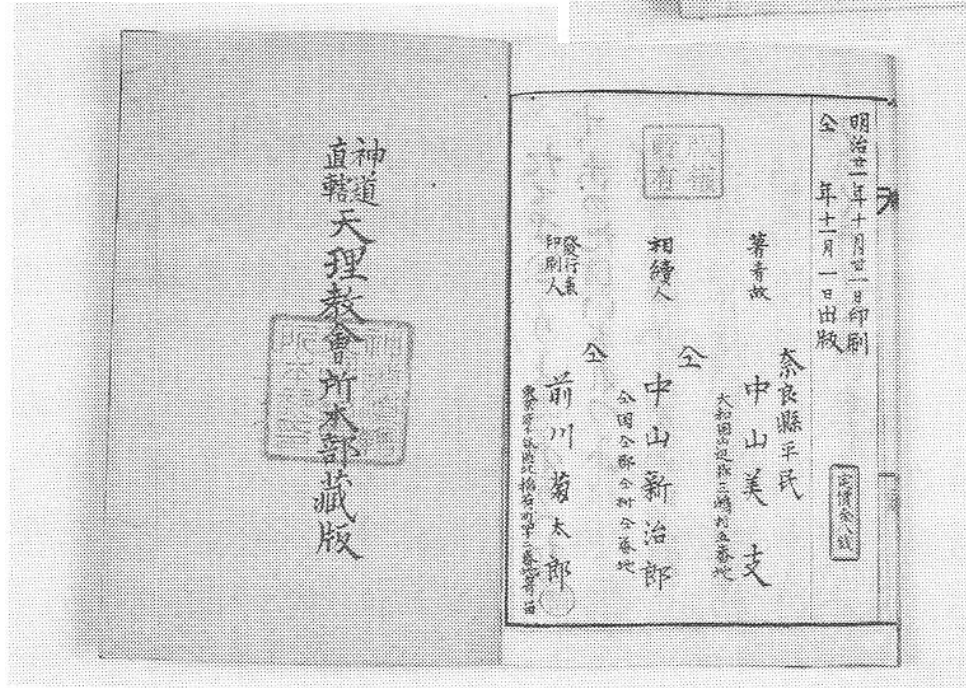 明治廿一年十月廿一日印刷
仝　年十一月一日出版
奈良縣平民
著者故　中山美支
大和國山辺郡三嶋村五番地
仝
相續人　中山新治郎
仝国仝郡仝村仝番地
仝
發行兼
印刷人　前川菊太郎
神道
直轄
天理教會所本部藏版